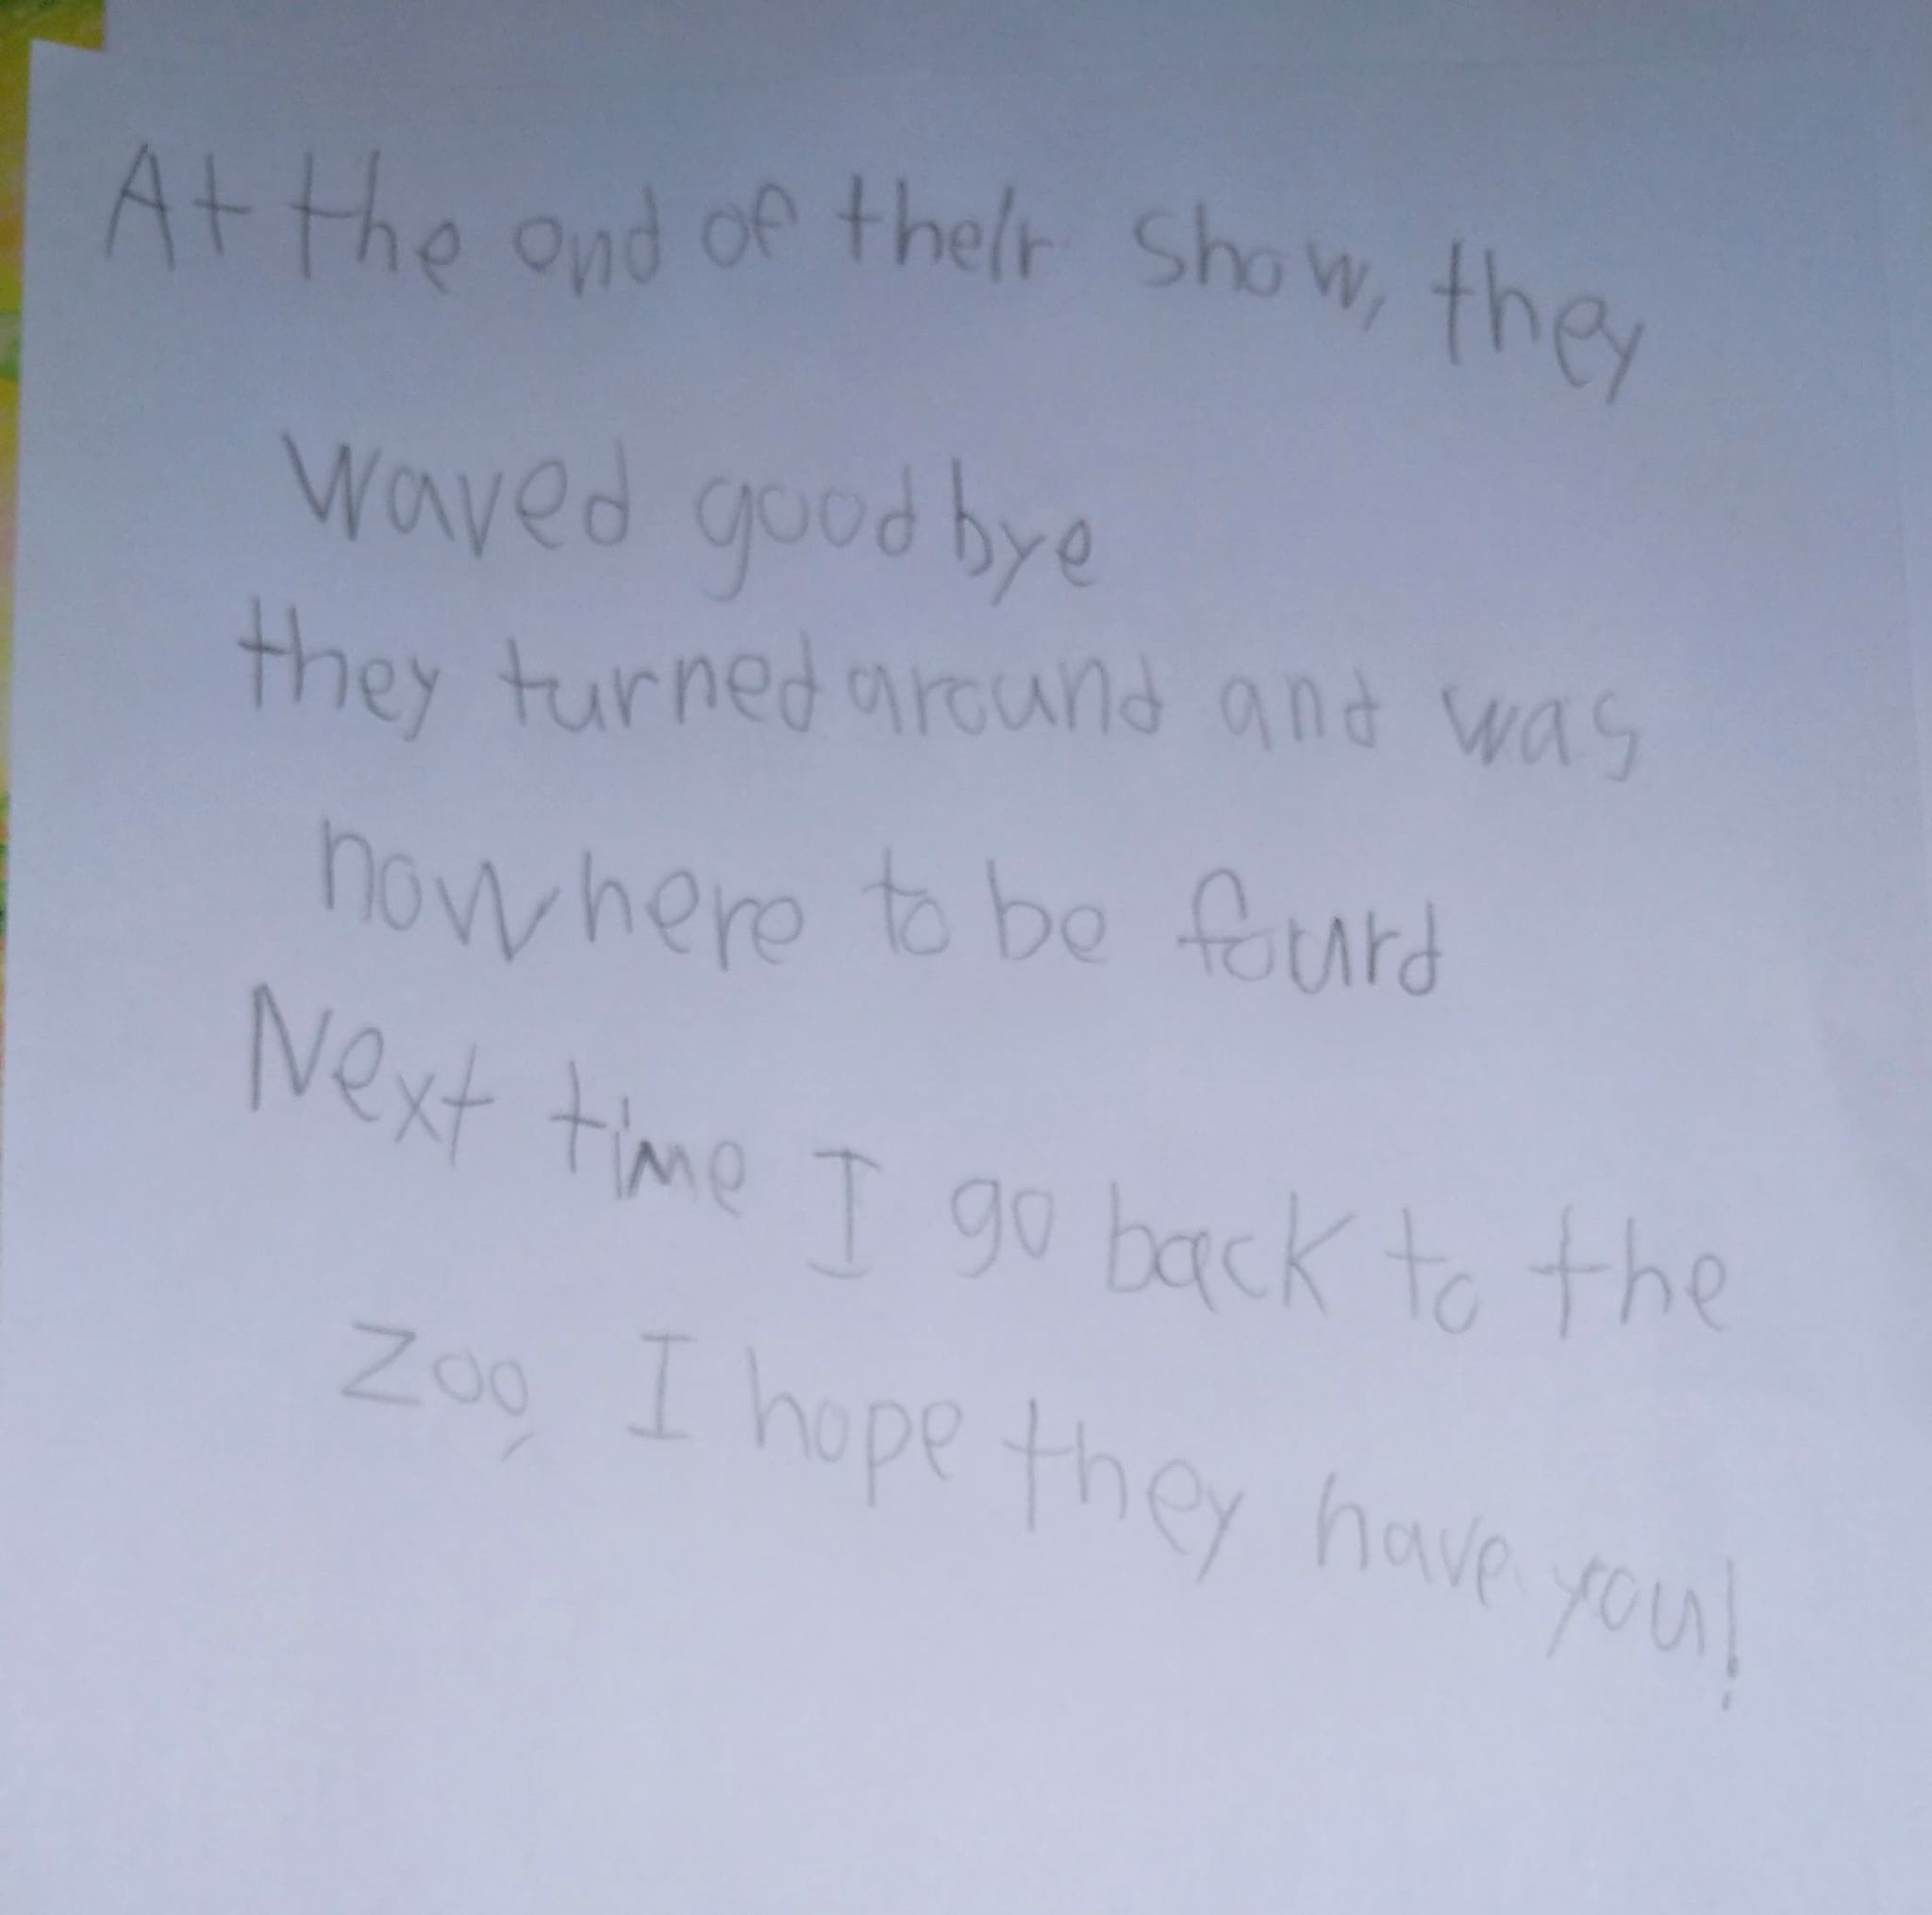 At the end of their show, they
waved goodbye
they turned around and was
nowhere to be found
Next time I go back to the
zoo, I hope they have you!